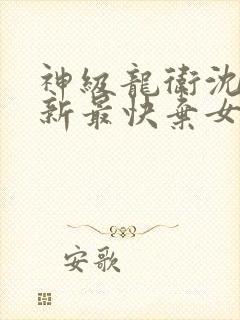 神級龍衛沈
新最快棄女
安歌